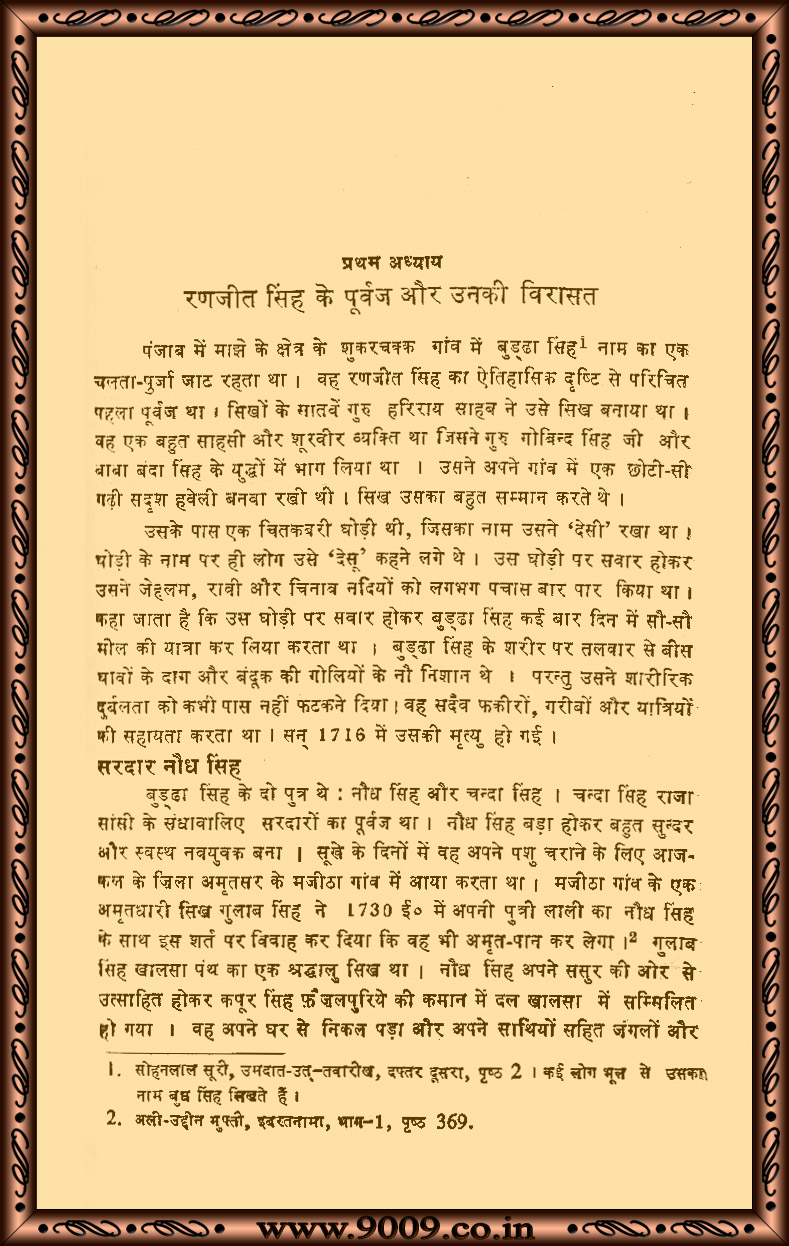 प्रथम अध्याय
रणजीत सिंह के पूर्वज और उनकी विरासत
पंजाब में माझे के क्षेत्र के शुकरचक्क गांव में बुड्ढा सिंह¹ नाम का एक
चलता-पुर्जा जाट रहता था । वह रणजीत सिंह का ऐतिहासिक दृष्टि से परिचित
पहला पूर्वज था । सिखों के सातवें गुरु हरिराय साहब ने उसे सिख बनाया था ।
वह एक बहुत साहसी और शूरवीर व्यक्ति था जिसने गुरु गोबिन्द सिंह जी और
बाबा बंदा सिंह के युद्धों में भाग लिया था । उसने अपने गांव में एक छोटी-सी
गढ़ी सदृश हवेली बनबा रखी थी । सिख उसका बहुत सम्मान करते थे ।
उसके पास एक चितकबरी घोड़ी थी, जिसका नाम उसने ‘देसी’ रखा था ।
घोड़ी के नाम पर ही लोग उसे ‘देसू’ कहने लगे थे । उस घोड़ी पर सवार होकर
उसने जेहलम, रावी और चिनाव नदियों को लगभग पचास बार पार किया था ।
कहा जाता है कि उस घोड़ी पर सवार होकर बुड्ढा सिंह कई बार दिन में सौ-सौ
मील की यात्रा कर लिया करता था । बुड्ढा सिंह के शरीर पर तलवार से बीस
घावों के दाग और बंदूक की गोलियों के नौ निशान थे । परन्तु उसने शारीरिक
दुर्बलता को कभी पास नहीं फटकने दिया । वह सदैव फकीरों, गरीबों और यात्रियों
की सहायता करता था । सन् 1716 में उसकी मृत्यु हो गई ।
सरदार नौध सिंह
बुड्ढा सिंह के दो पुत्र थे : नौध सिंह और चन्दा सिंह । चन्दा सिंह राजा
सांसी के संधावालिए सरदारों का पूर्वज था । नौध सिंह बड़ा होकर बहुत सुन्दर
और स्वस्थ नवयुवक बना । सूखे के दिनों में वह अपने पशु चराने के लिए आज-
कल के ज़िला अमृतसर के मजीठा गांव में आया करता था । मजीठा गांव के एक
अमृतधारी सिख गुलाब सिंह ने 1730 ई० में अपनी पुत्री लाली का नौध सिंह
के साथ इस शर्त पर विवाह कर दिया कि वह भी अमृत-पान कर लेगा ।² गुलाब
सिंह खालसा पंथ का एक श्रद्धालु सिख था । नौध सिंह अपने ससुर की ओर से
उत्साहित होकर कपूर सिंह फ़ैजलपुरिये की कमान में दल खालसा में सम्मिलित
हो गया । वह अपने घर से निकल पड़ा और अपने साथियों सहित जंगलों और
1. सोहनलाल सूरी, उमदात-उत्-तवारीख, दफ्तर दूसरा, पृष्ठ 2 । कई लोग भूल से उसका
नाम बुध सिंह लिखते हैं ।
2. अली-उद्दीन मुफ्ती, इबरतनामा, भाग-1, पृष्ठ 369.
www.9009.co.in